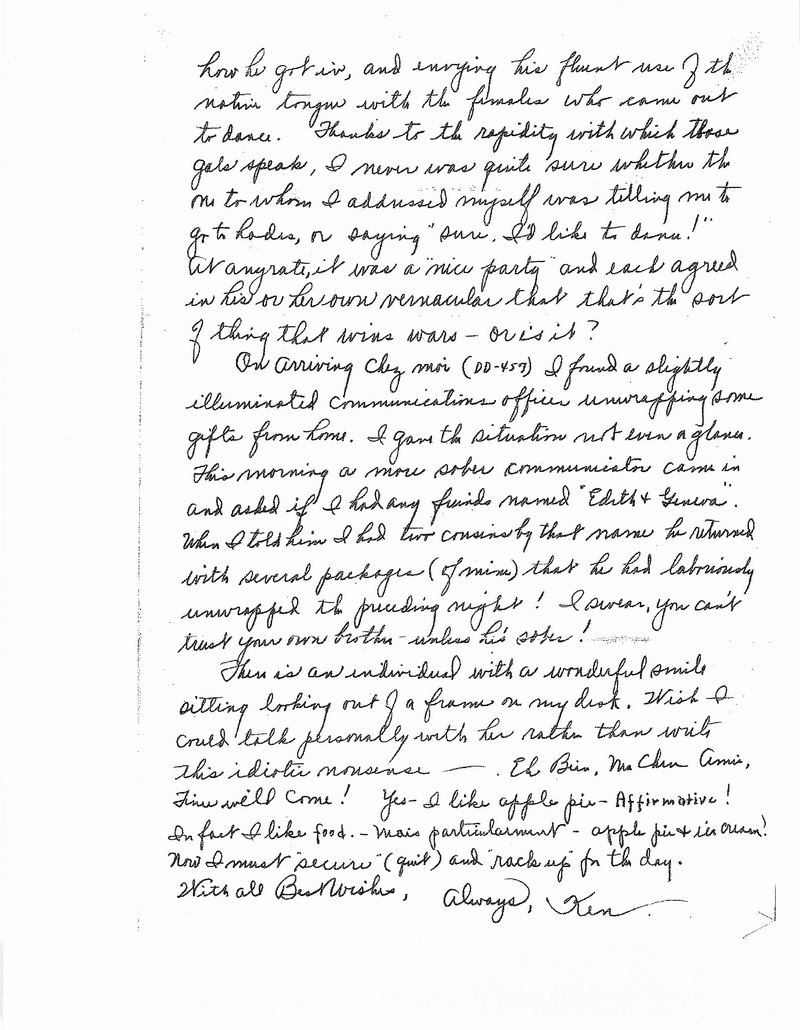 how he got in, and envying his fluent use of the
native tongue with the females who came out
to dance. Thanks to the rapidity with which those
gals speak, I never was quite sure whether the
one to whom I addressed myself was telling me to
go to hades, or saying "sure, I'd like to dance!"
At anyrate, it was a "nice party" and each agreed
in his or her own vernacular that that's the sort
of thing that wins wars – or is it?
On Arriving Chez moi (DD-457) I found a slightly
illuminated communications officer unwrapping some
gifts from home. I gave the situation not even a glance.
This morning a more sober communicator came in
and asked if I had any friends named "Edith & Geneva".
When I told him I had two cousins by that name he returned
with several packages (of mine) that he had laboriously
unwrapped the preceding night! I swear, you can't
trust your own brother – unless he's sober!
There is an individual with a wonderful smile
sitting looking out of a frame on my desk. Wish I
could talk personally with her rather than write
this idiotic nonsense —. Eh Bien, Ma Chere Amie,
Time will Come! Yes – I like apple pie – Affirmative!
In fact I like food. – Mais particularment – apple pie & ice cream!
Now I must "secure" (quit) and "rack up" for the day.
With all Best Wishes, Always, Ken